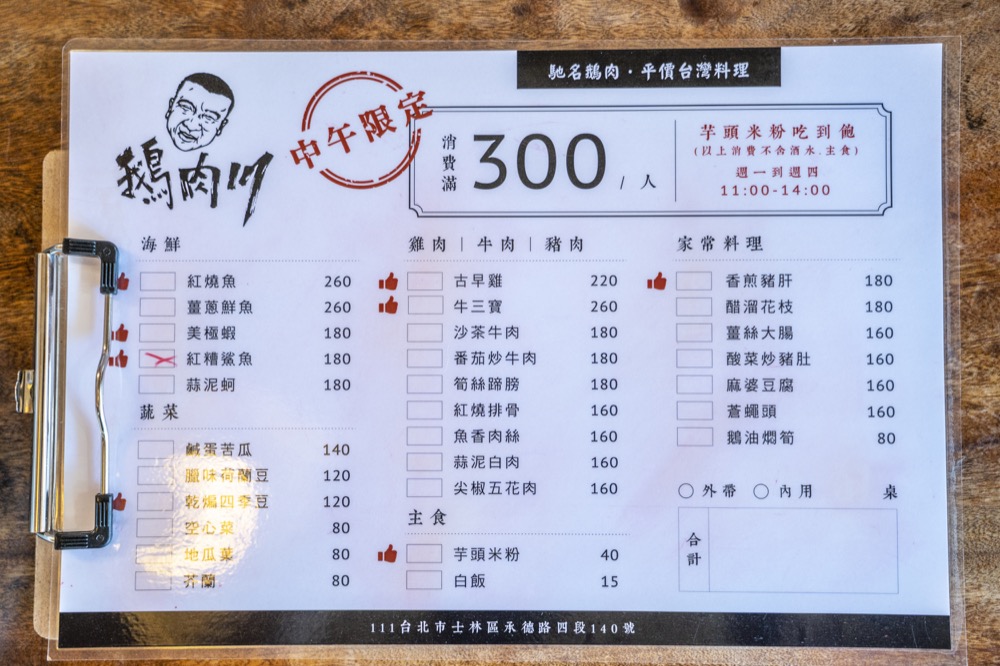 馳名鵝肉・平價台灣料理
鵝肉川
中午限定
消費滿
300 / 人
芋頭米粉吃到飽
(以上消費不含酒水.主食)
週一到週四
11:00-14:00
海鮮
紅燒魚 260
薑蔥鮮魚 260
美極蝦 180
紅糟鯊魚 180
蒜泥蚵 180
蔬菜
鹹蛋苦瓜 140
臘味荷蘭豆 120
乾煸四季豆 120
空心菜 80
地瓜葉 80
芥蘭 80
雞肉 | 牛肉 | 豬肉
古早雞 220
牛三寶 260
沙茶牛肉 180
番茄炒牛肉 180
筍絲蹄膀 180
紅燒排骨 160
魚香肉絲 160
蒜泥白肉 160
尖椒五花肉 160
主食
芋頭米粉 40
白飯 15
家常料理
香煎豬肝 180
醋溜花枝 180
薑絲大腸 160
酸菜炒豬肚 160
麻婆豆腐 160
蒼蠅頭 160
鵝油燜筍 80
外帶 內用 桌
合計
111台北市士林區承德路四段140號